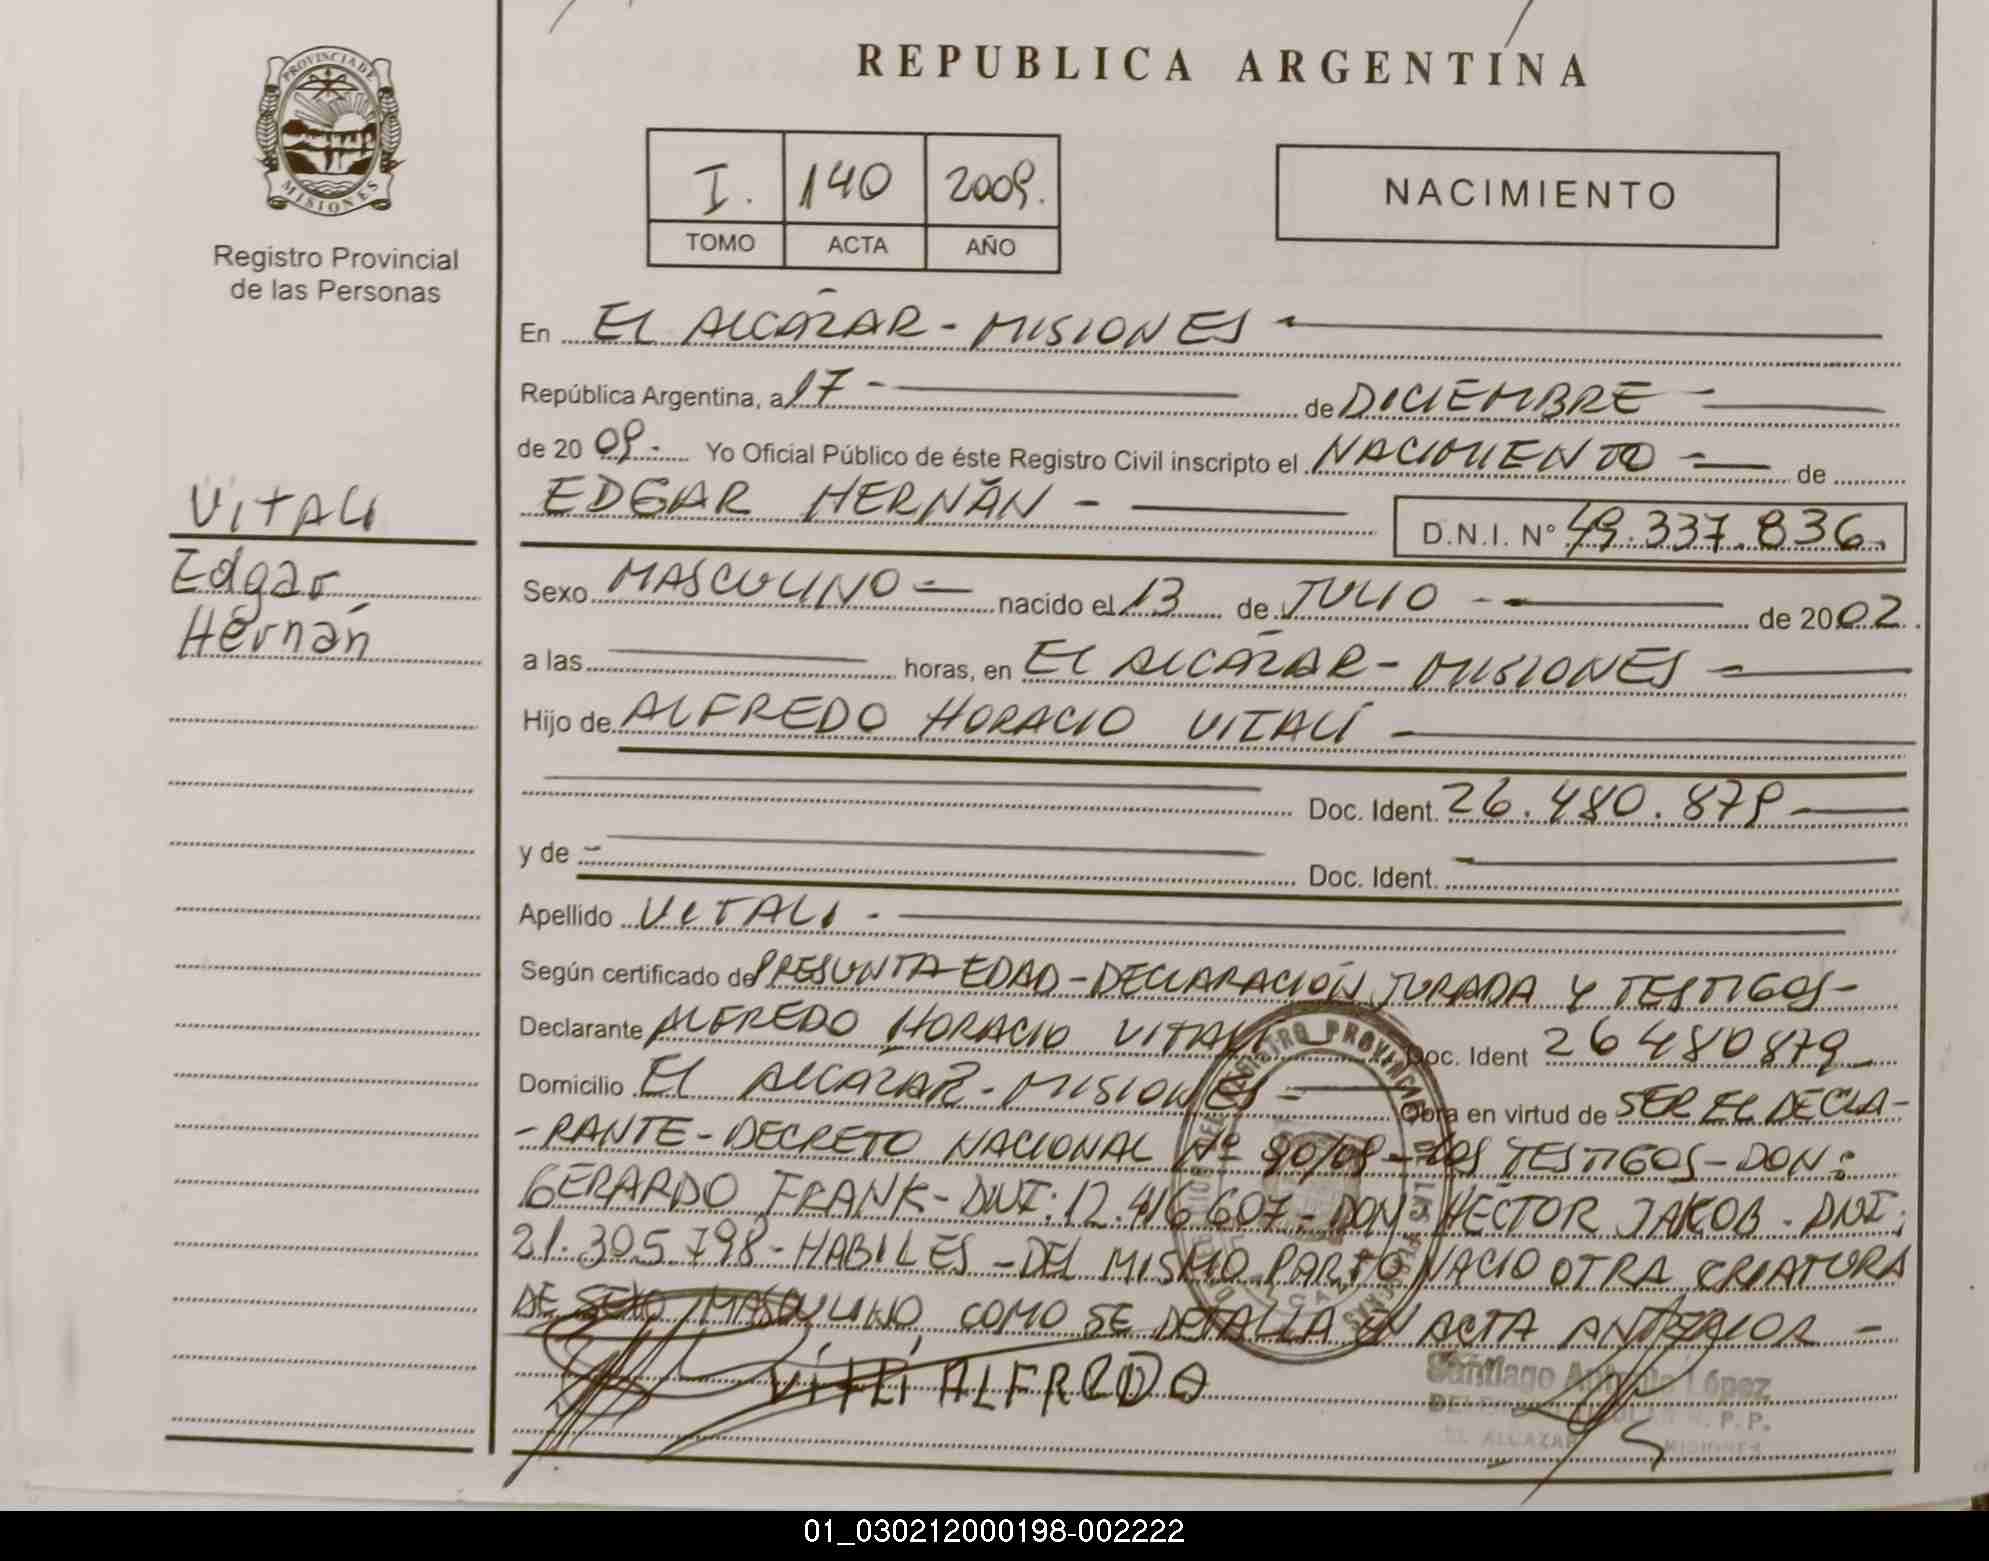 PROVINCIA DE
MISIONES
Registro Provincial
de las Personas
REPUBLICA ARGENTINA
I. 140 2009.
TOMO ACTA AÑO
NACIMIENTO
En EL ALCAZAR - MISIONES -
República Argentina, a 17 - de DICIEMBRE -
de 20 09. Yo Oficial Público de éste Registro Civil inscripto el NACIMIENTO - de
EDGAR HERNÁN - D.N.I. Nº 49.337.836.
VITALI
Edgar
Hernán
Sexo MASCULINO - nacido el 13 de JULIO - de 2002.
a las horas, en EL ALCAZAR - MISIONES -
Hijo de ALFREDO HORACIO VITALI
Doc. Ident. 26.480.879
y de - Doc. Ident.
Apellido VITALI -
Según certificado de PRESUNTA EDAD - DECLARACIÓN JURADA Y TESTIGOS -
Declarante ALFREDO HORACIO VITALI Doc. Ident 26480879
Domicilio EL ALCAZAR - MISIONES - Obra en virtud de SER EL DECLA-
-RANTE - DECRETO NACIONAL Nº 90/09 - LOS TESTIGOS - DON:
GERARDO FRANK - DNI: 12.416.607 - DON HÉCTOR JAKOB - DNI:
21.305.798 - HABILES - DEL MISMO PARTO NACIO OTRA CRIATURA
DE SEXO MASCULINO, COMO SE DETALLA EN ACTA ANTERIOR -
ALFREDO
Santiago Antonio López
EL ALCAZAR MISIONES
01_030212000198-002222